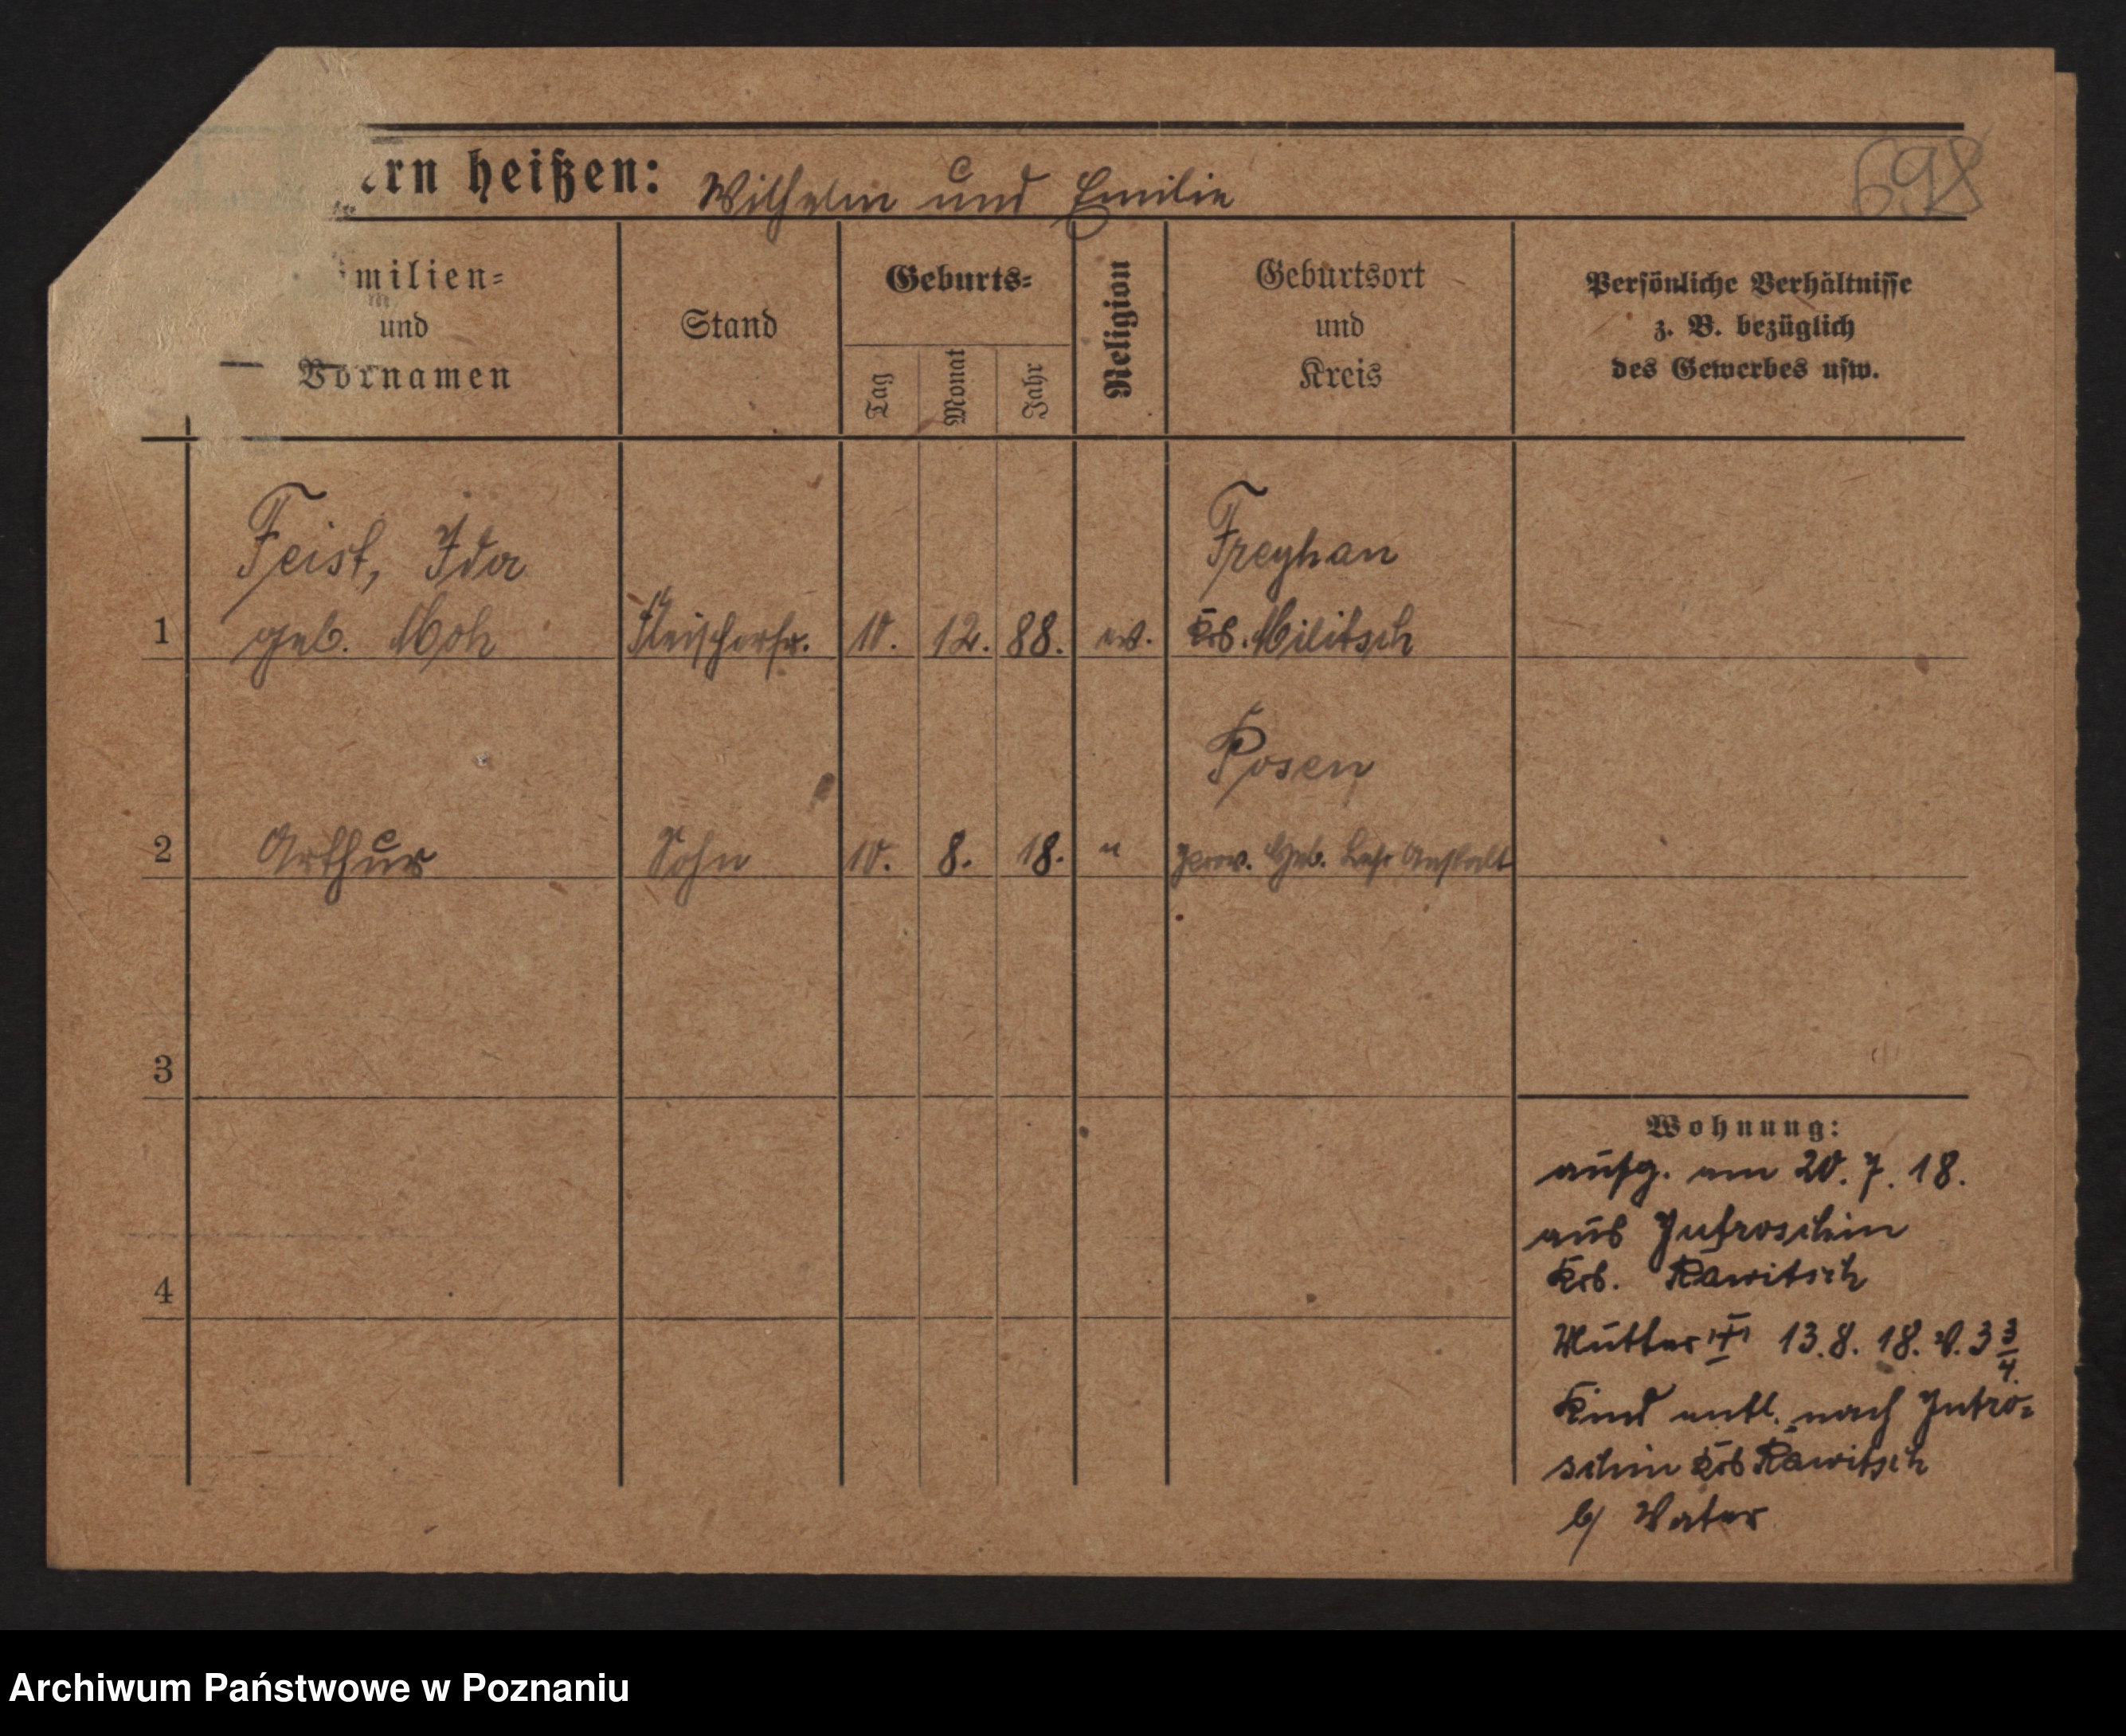 ern heißen: Wilhelm und Emilie
698
milien=
und
Vornamen
Stand
Geburts=
Tag
Monat
Jahr
Religion
Geburtsort
und
Kreis
Persönliche Verhältnisse
z. B. bezüglich
des Gewerbes usw.
Feist, Ida
Freyhan
1 geb. Moh Fleischerfr. 10. 12. 88. ev. Krs. Militsch
Posen
2 Arthur Sohn 10. 8. 18. " prov. Heb. Lehr Anstalt
3
4
Wohnung:
aufg. am 20. 7. 18.
aus Jutroschin
Krs. Rawitsch
Mutter 13. 8. 18. V. 3 3/4
Kind entl. nach Jutro=
schin Krs Rawitsch
b/ Vater
Archiwum Państwowe w Poznaniu